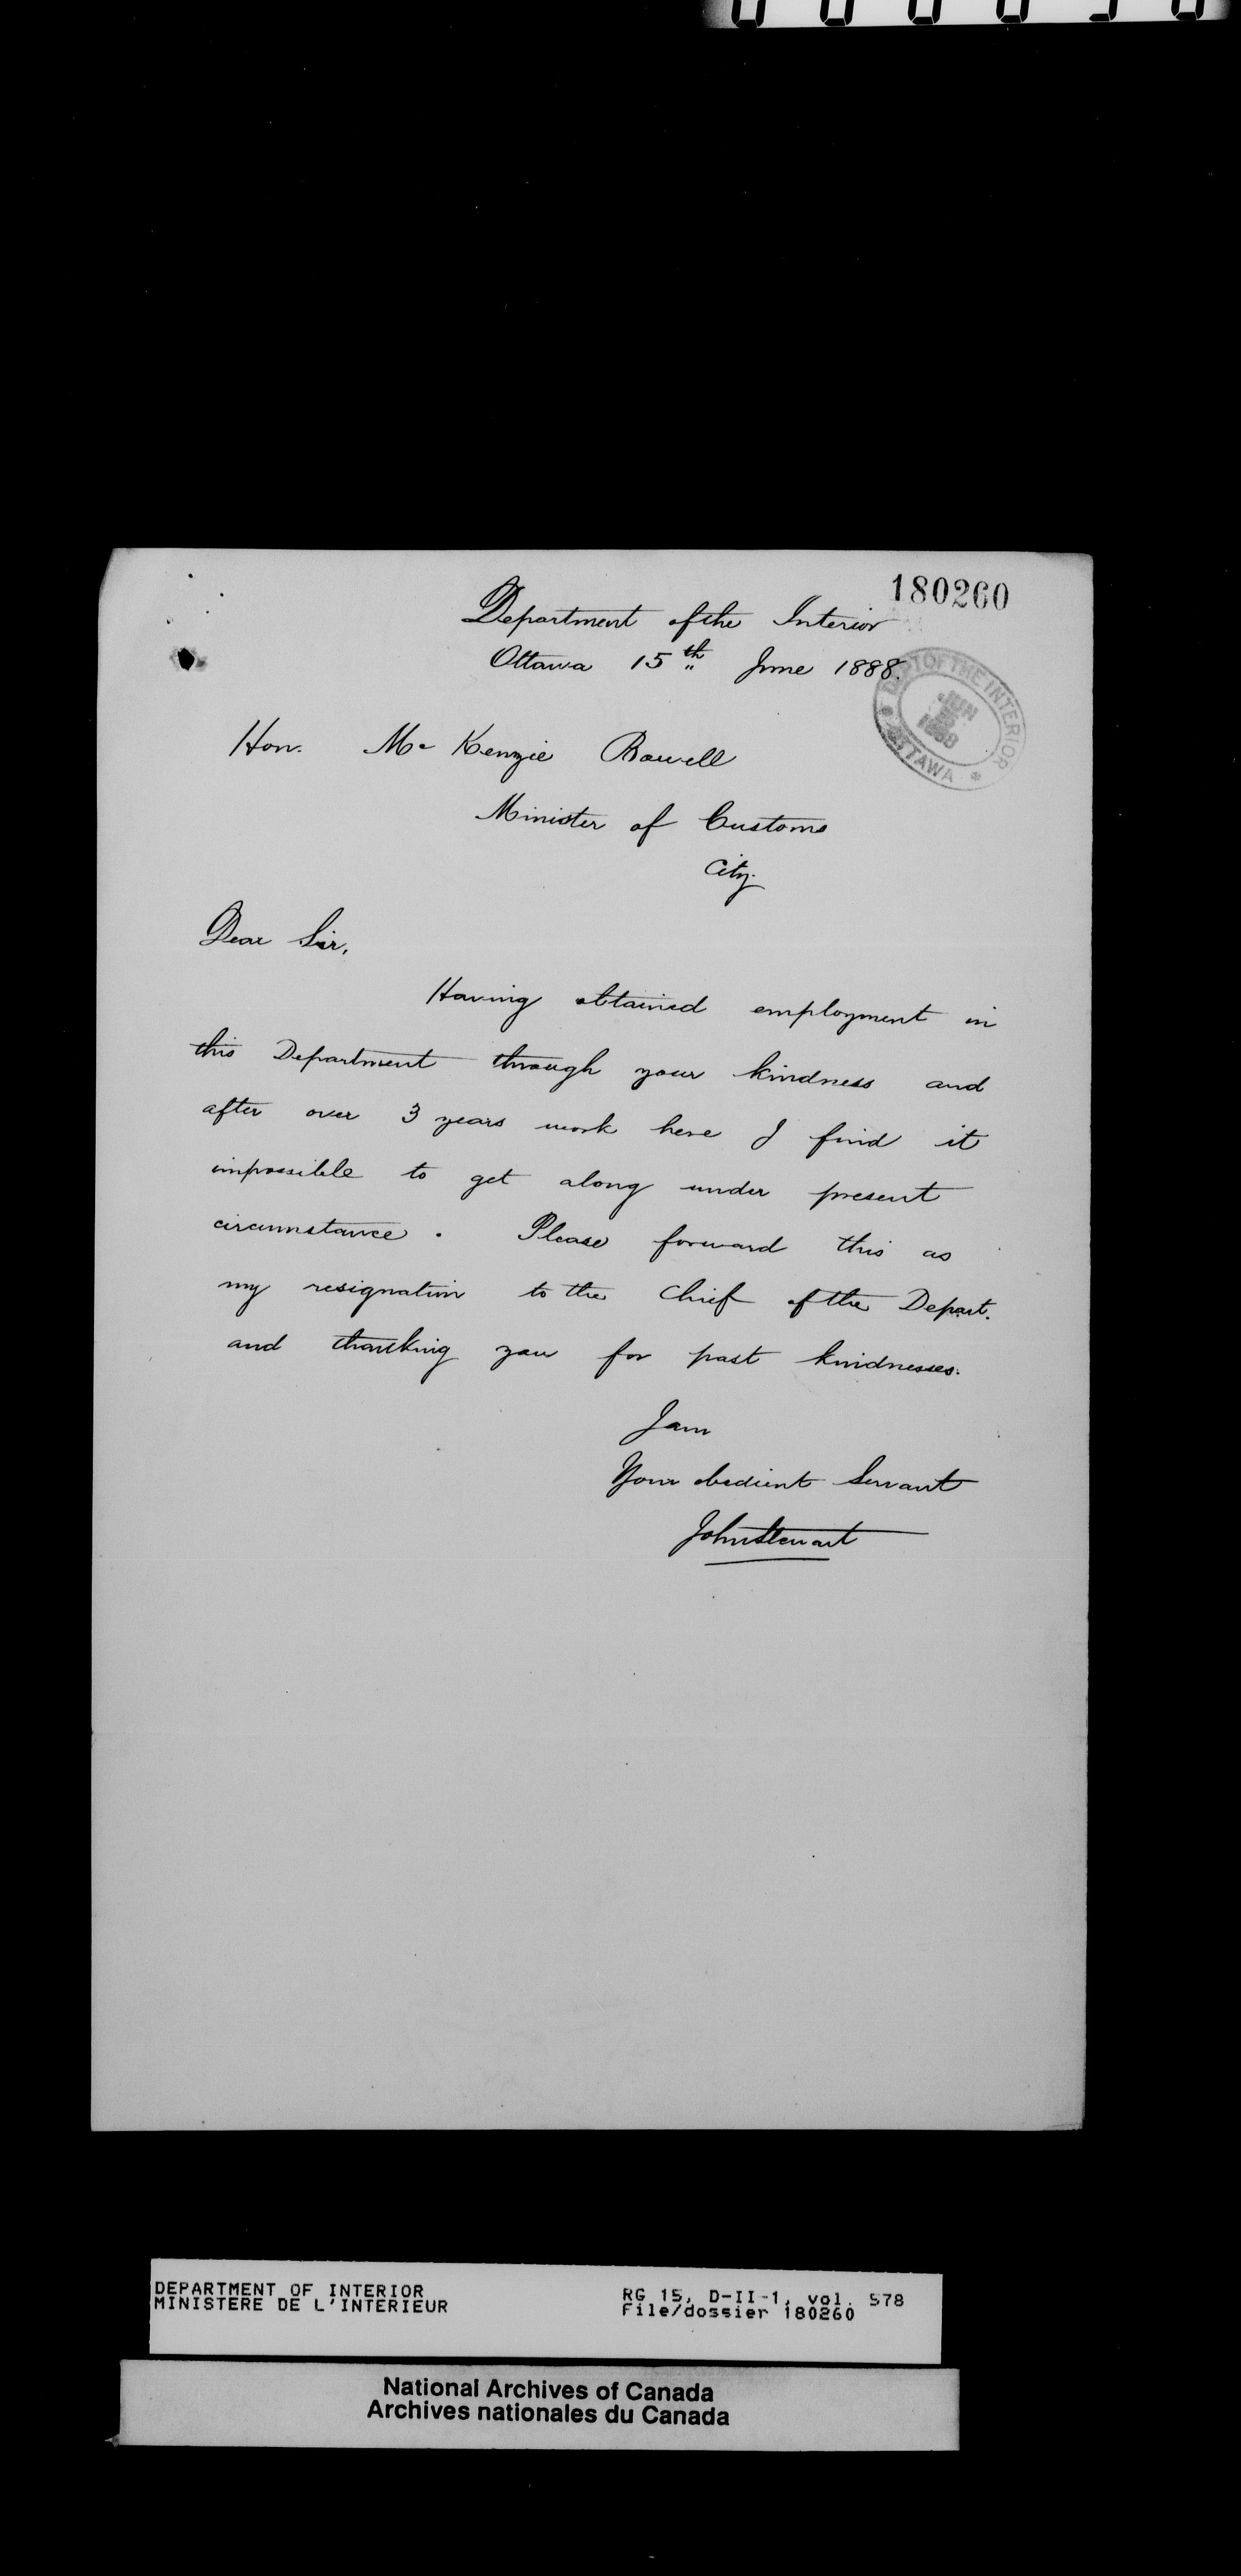 180260
Department of the Interior
Ottawa 15th June 1888.
DEPT OF THE INTERIOR
JUN
1888
OTTAWA
Hon. Mc Kenzie Bowell
Minister of Customs
City.
Dear Sir,
Having obtained employment in
this Department through your kindness and
after over 3 years work here I find it
impossible to get along under present
circumstance. Please forward this as
my resignation to the Chief of the Depart.
and thanking you for past kindnesses.
I am
Your obedient Servant
John Stewart
DEPARTMENT OF INTERIOR
MINISTERE DE L'INTERIEUR
RG 15, D-II-1, vol. 578
File/dossier 180260
National Archives of Canada
Archives nationales du Canada